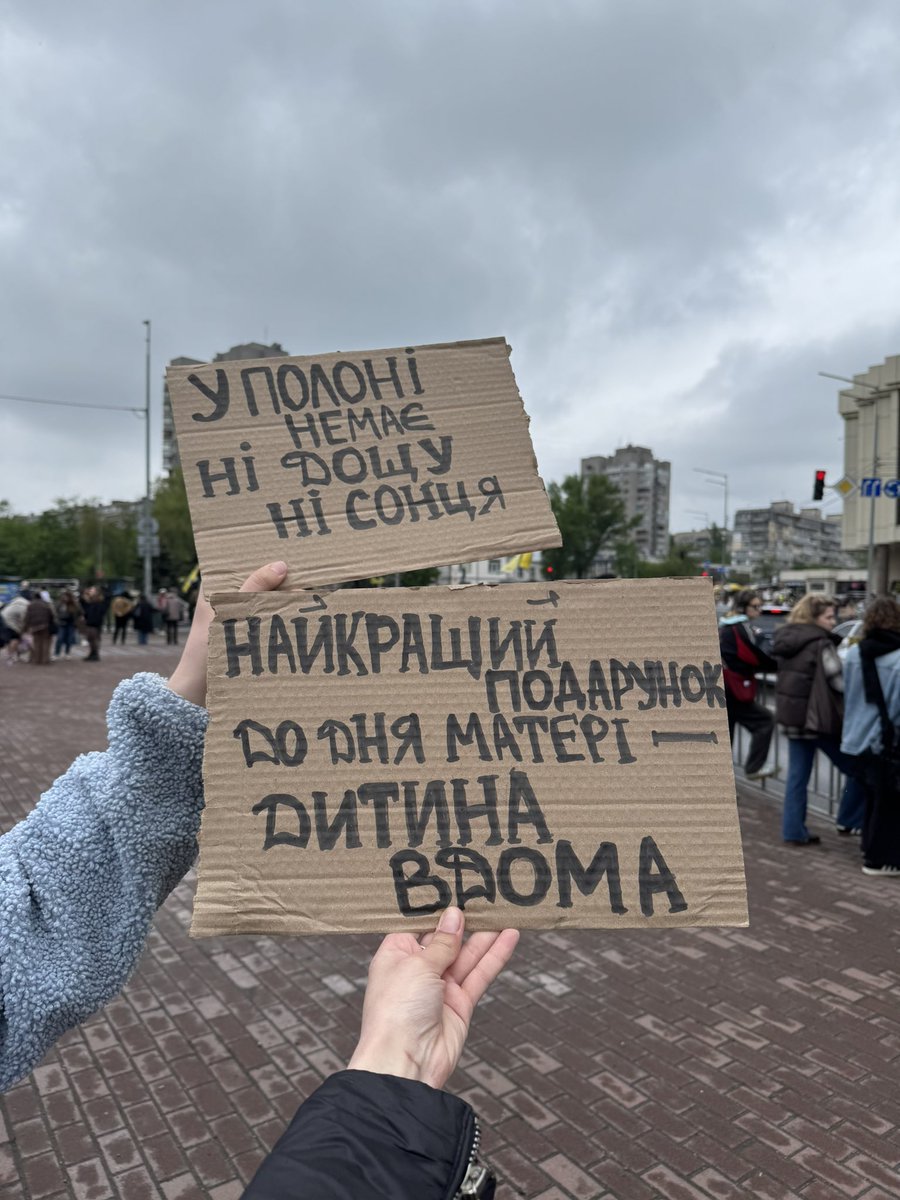 У ПОЛОНІ
НЕМАЄ
НІ ДОЩУ
НІ СОНЦЯ
НАЙКРАЩИЙ
ПОДАРУНОК
ДО ДНЯ МАТЕРІ —
ДИТИНА
ВДОМА